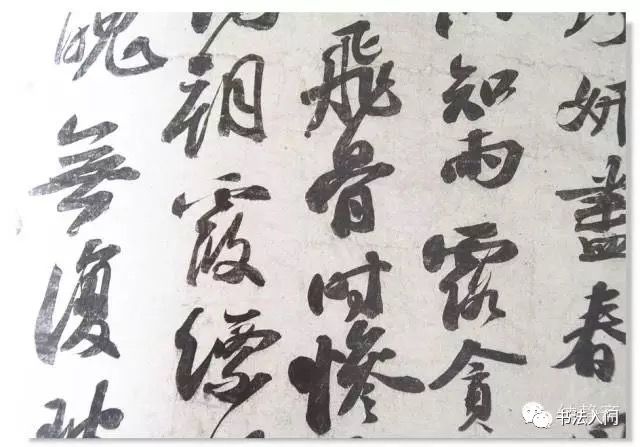 妍盡春
知雨露貪
飛骨時慘
朝霞縹
無復
书法入门